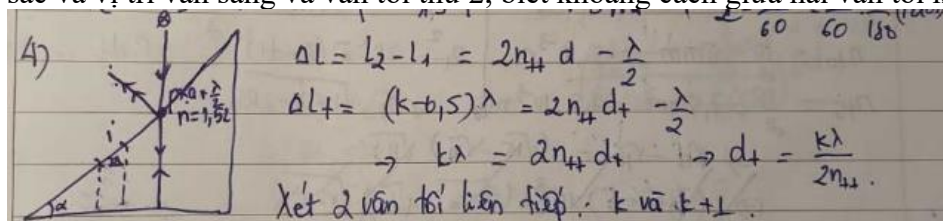 sắc và vị trí vân sáng và vân tối thứ 2, biết khoảng cách giữa hai vân tối
60 60 180
4)
ΔL = L₂ - L₁ = 2n_tt d - λ/2
n = 1,52
ΔL_t = (k-0,5)λ = 2n_tt d_t - λ/2
→ kλ = 2n_tt d_t → d_t = kλ/2n_tt.
α
Xét 2 vân tối liên tiếp: k và k+1.